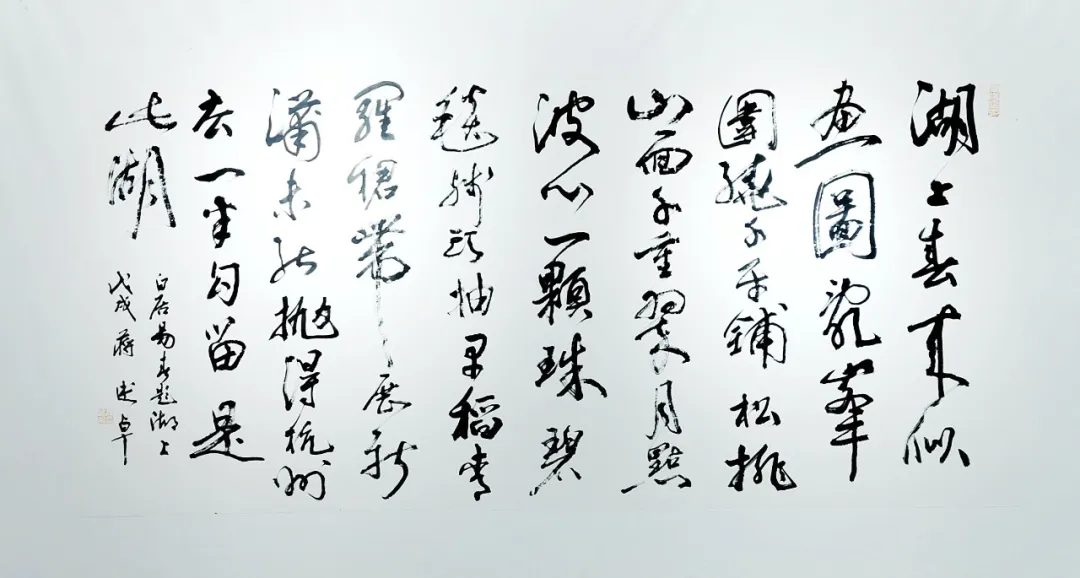 湖上春來似
畫圖亂峯
圍繞水平鋪松排
山面千重翠月點
波心一顆珠碧
毯綫頭抽早稻青
羅裙帶展新
蒲未能拋得杭州
去一半勾留是
此湖
白居易春題湖上
戊戌蔣述卓